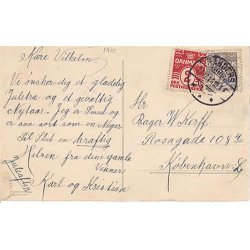 1910
Kære Vilhelm
Vi ønsker dig et glædelig
Juletræ og et gevaltig
Nytaar. Jeg er Smed og
er saa sort som en Neger
Til Slut en kraftig
Hilsen fra dine gamle
Venner
Karl og Kristian
Juleaften
DANMARK
Hr
Bager W Kerff.
Rosagade 108
København L